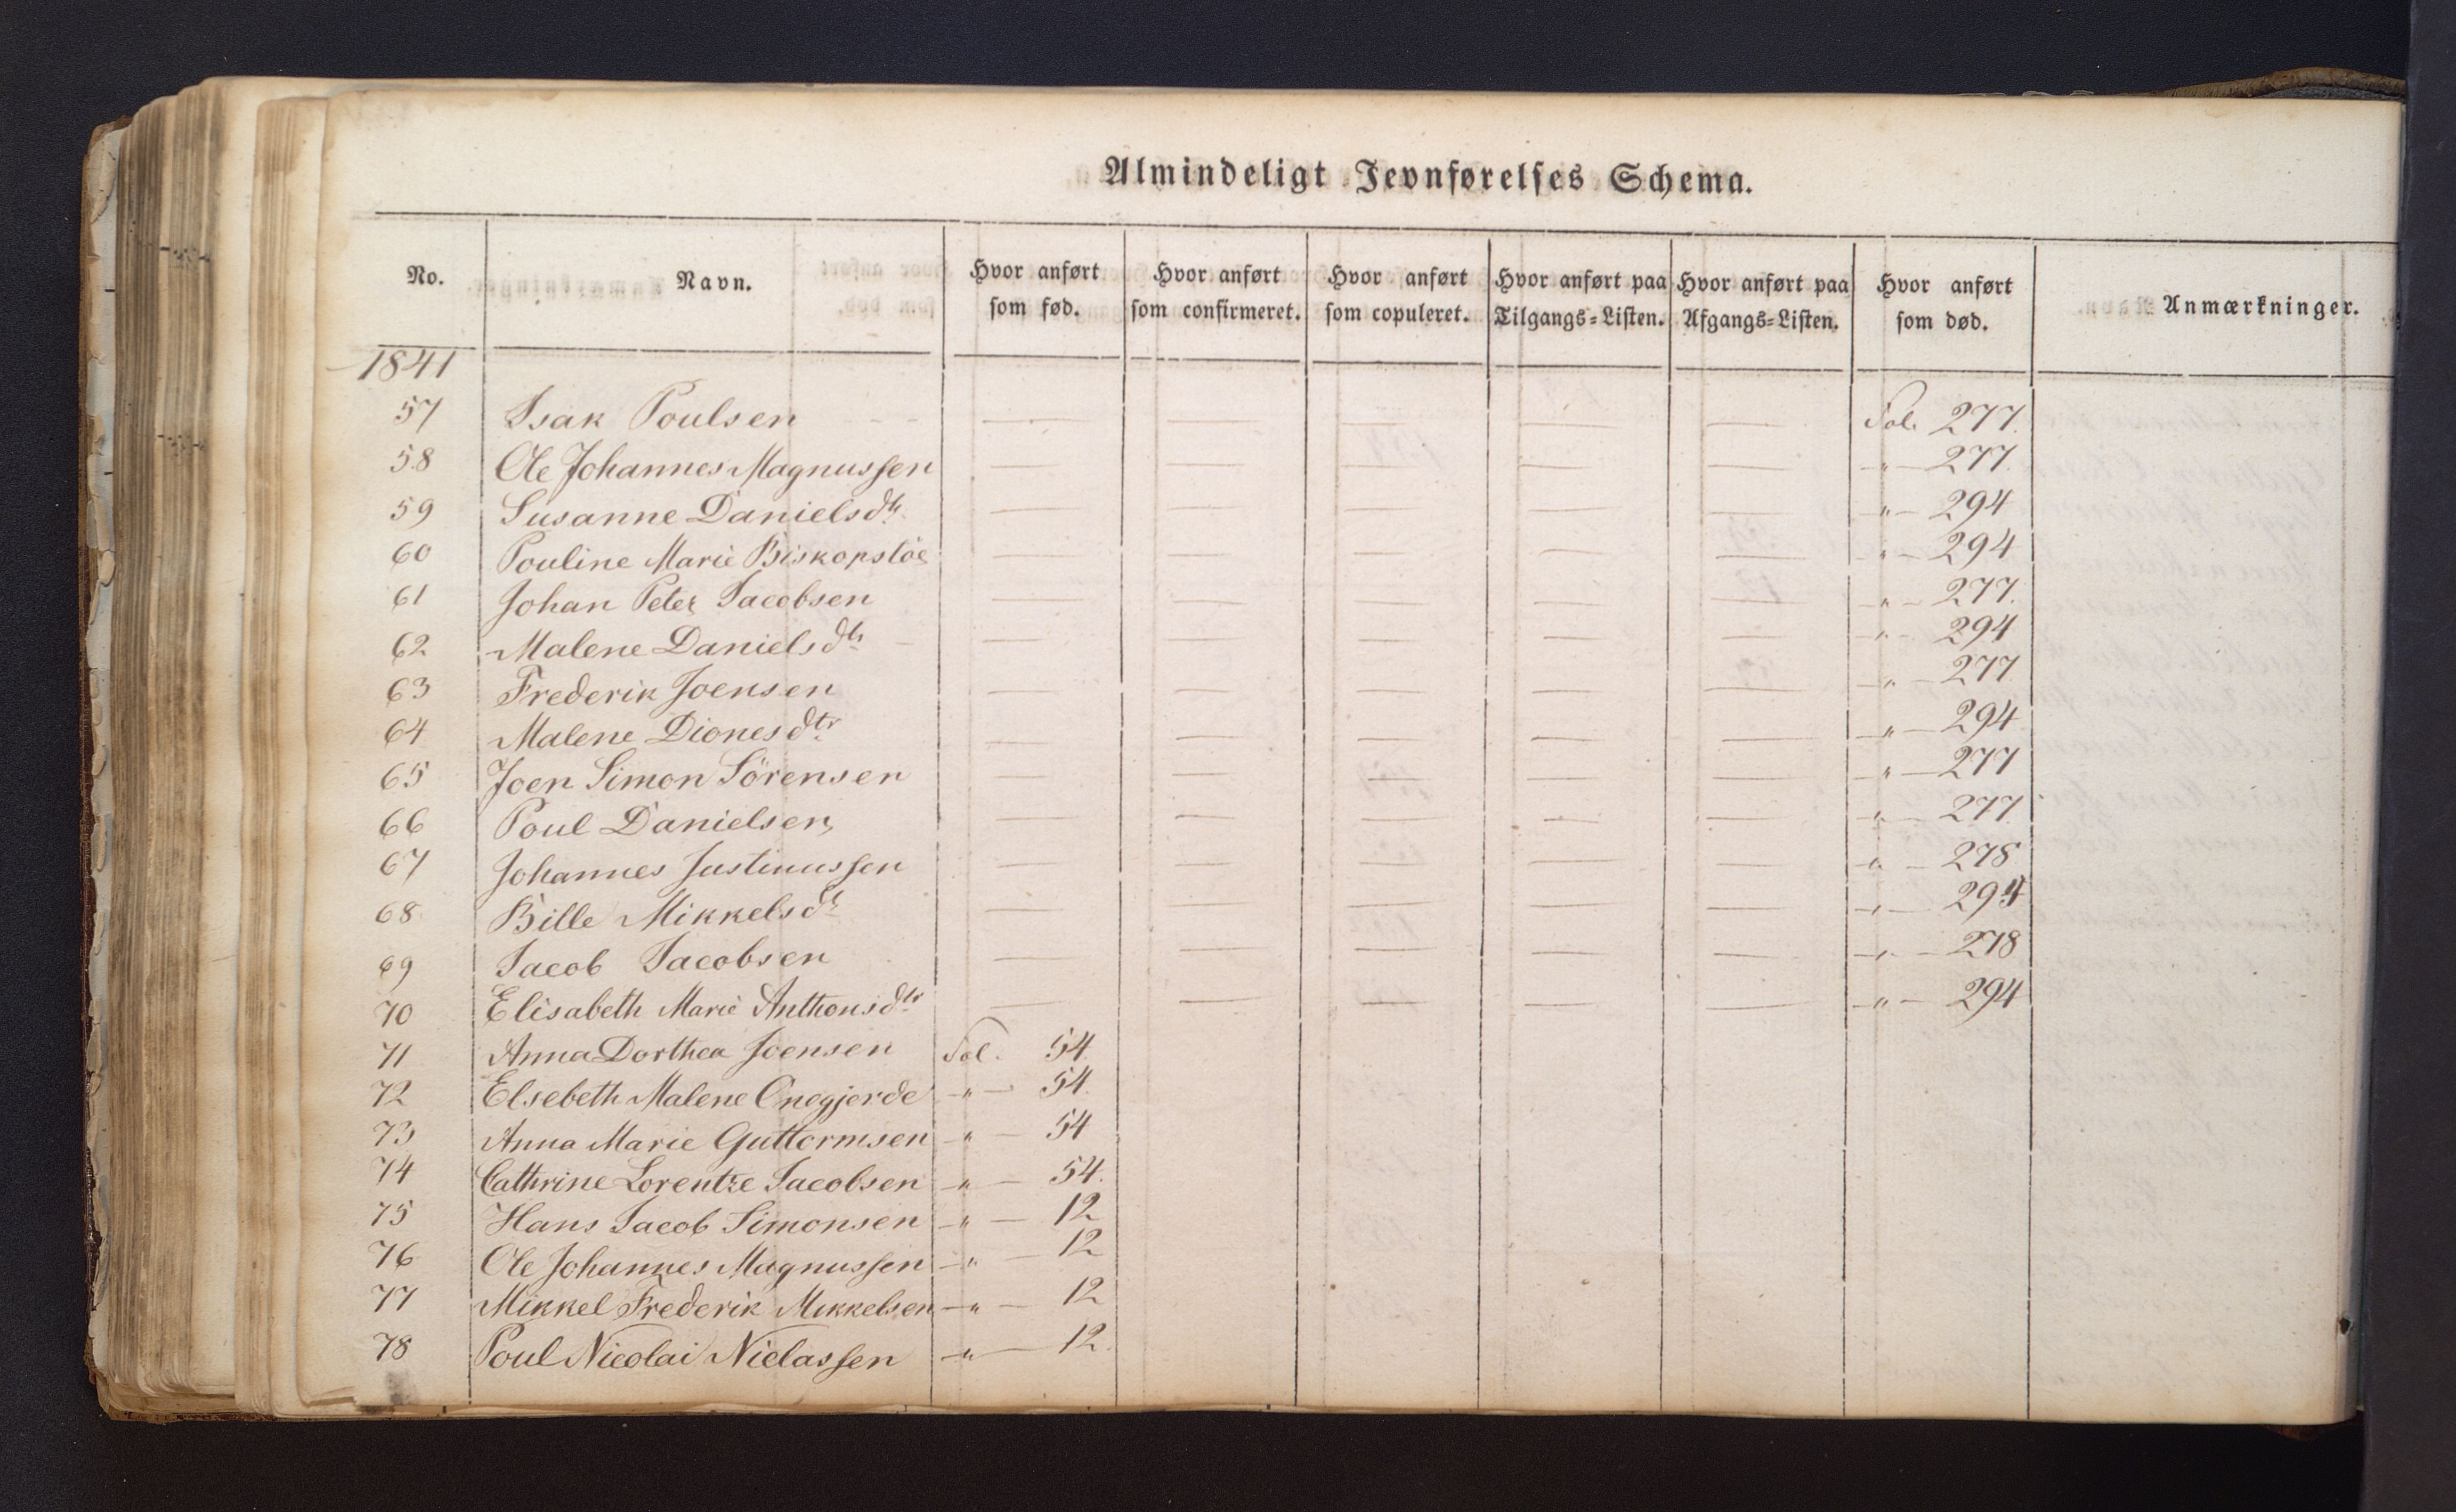 Almindeligt Jevnførelses Schema.
No. Navn. Hvor anført som fød. Hvor anført som confirmeret. Hvor anført som copuleret. Hvor anført paa Tilgangs=Listen. Hvor anført paa Afgangs=Listen. Hvor anført som død. Anmærkninger.
1841
57 Isak Poulsen — — — — — Fol. 277.
58 Ole Johannes Magnussen — — — — — " — 277.
59 Susanne Danielsdtr — — — — — " — 294
60 Pouline Marie Biskopstöe — — — — — " — 294
61 Johan Peter Jacobsen — — — — — " — 277.
62 Malene Danielsdtr — — — — — " — 294
63 Frederik Joensen — — — — — " — 277
64 Malene Dionesdtr — — — — — " — 294
65 Joen Simon Sörensen — — — — — " — 277
66 Poul Danielsen — — — — — " — 277.
67 Johannes Justinussen — — — — — " — 278
68 Bille Mikkelsdt — — — — — " — 294
69 Jacob Jacobsen — — — — — " — 278
70 Elisabeth Marie Anthonsdtr — — — — — " — 294
71 Anna Dorthea Joensen Fol. 54.
72 Elsebeth Malene Önegjerde " — 54.
73 Anna Marie Guttormsen " — 54
74 Cathrine Lorentze Jacobsen " — 54.
75 Hans Jacob Simonsen " — 12
76 Ole Johannes Magnussen " — 12
77 Mikkel Frederik Mikkelsen " — 12
78 Poul Nicolai Nielassen " — 12.